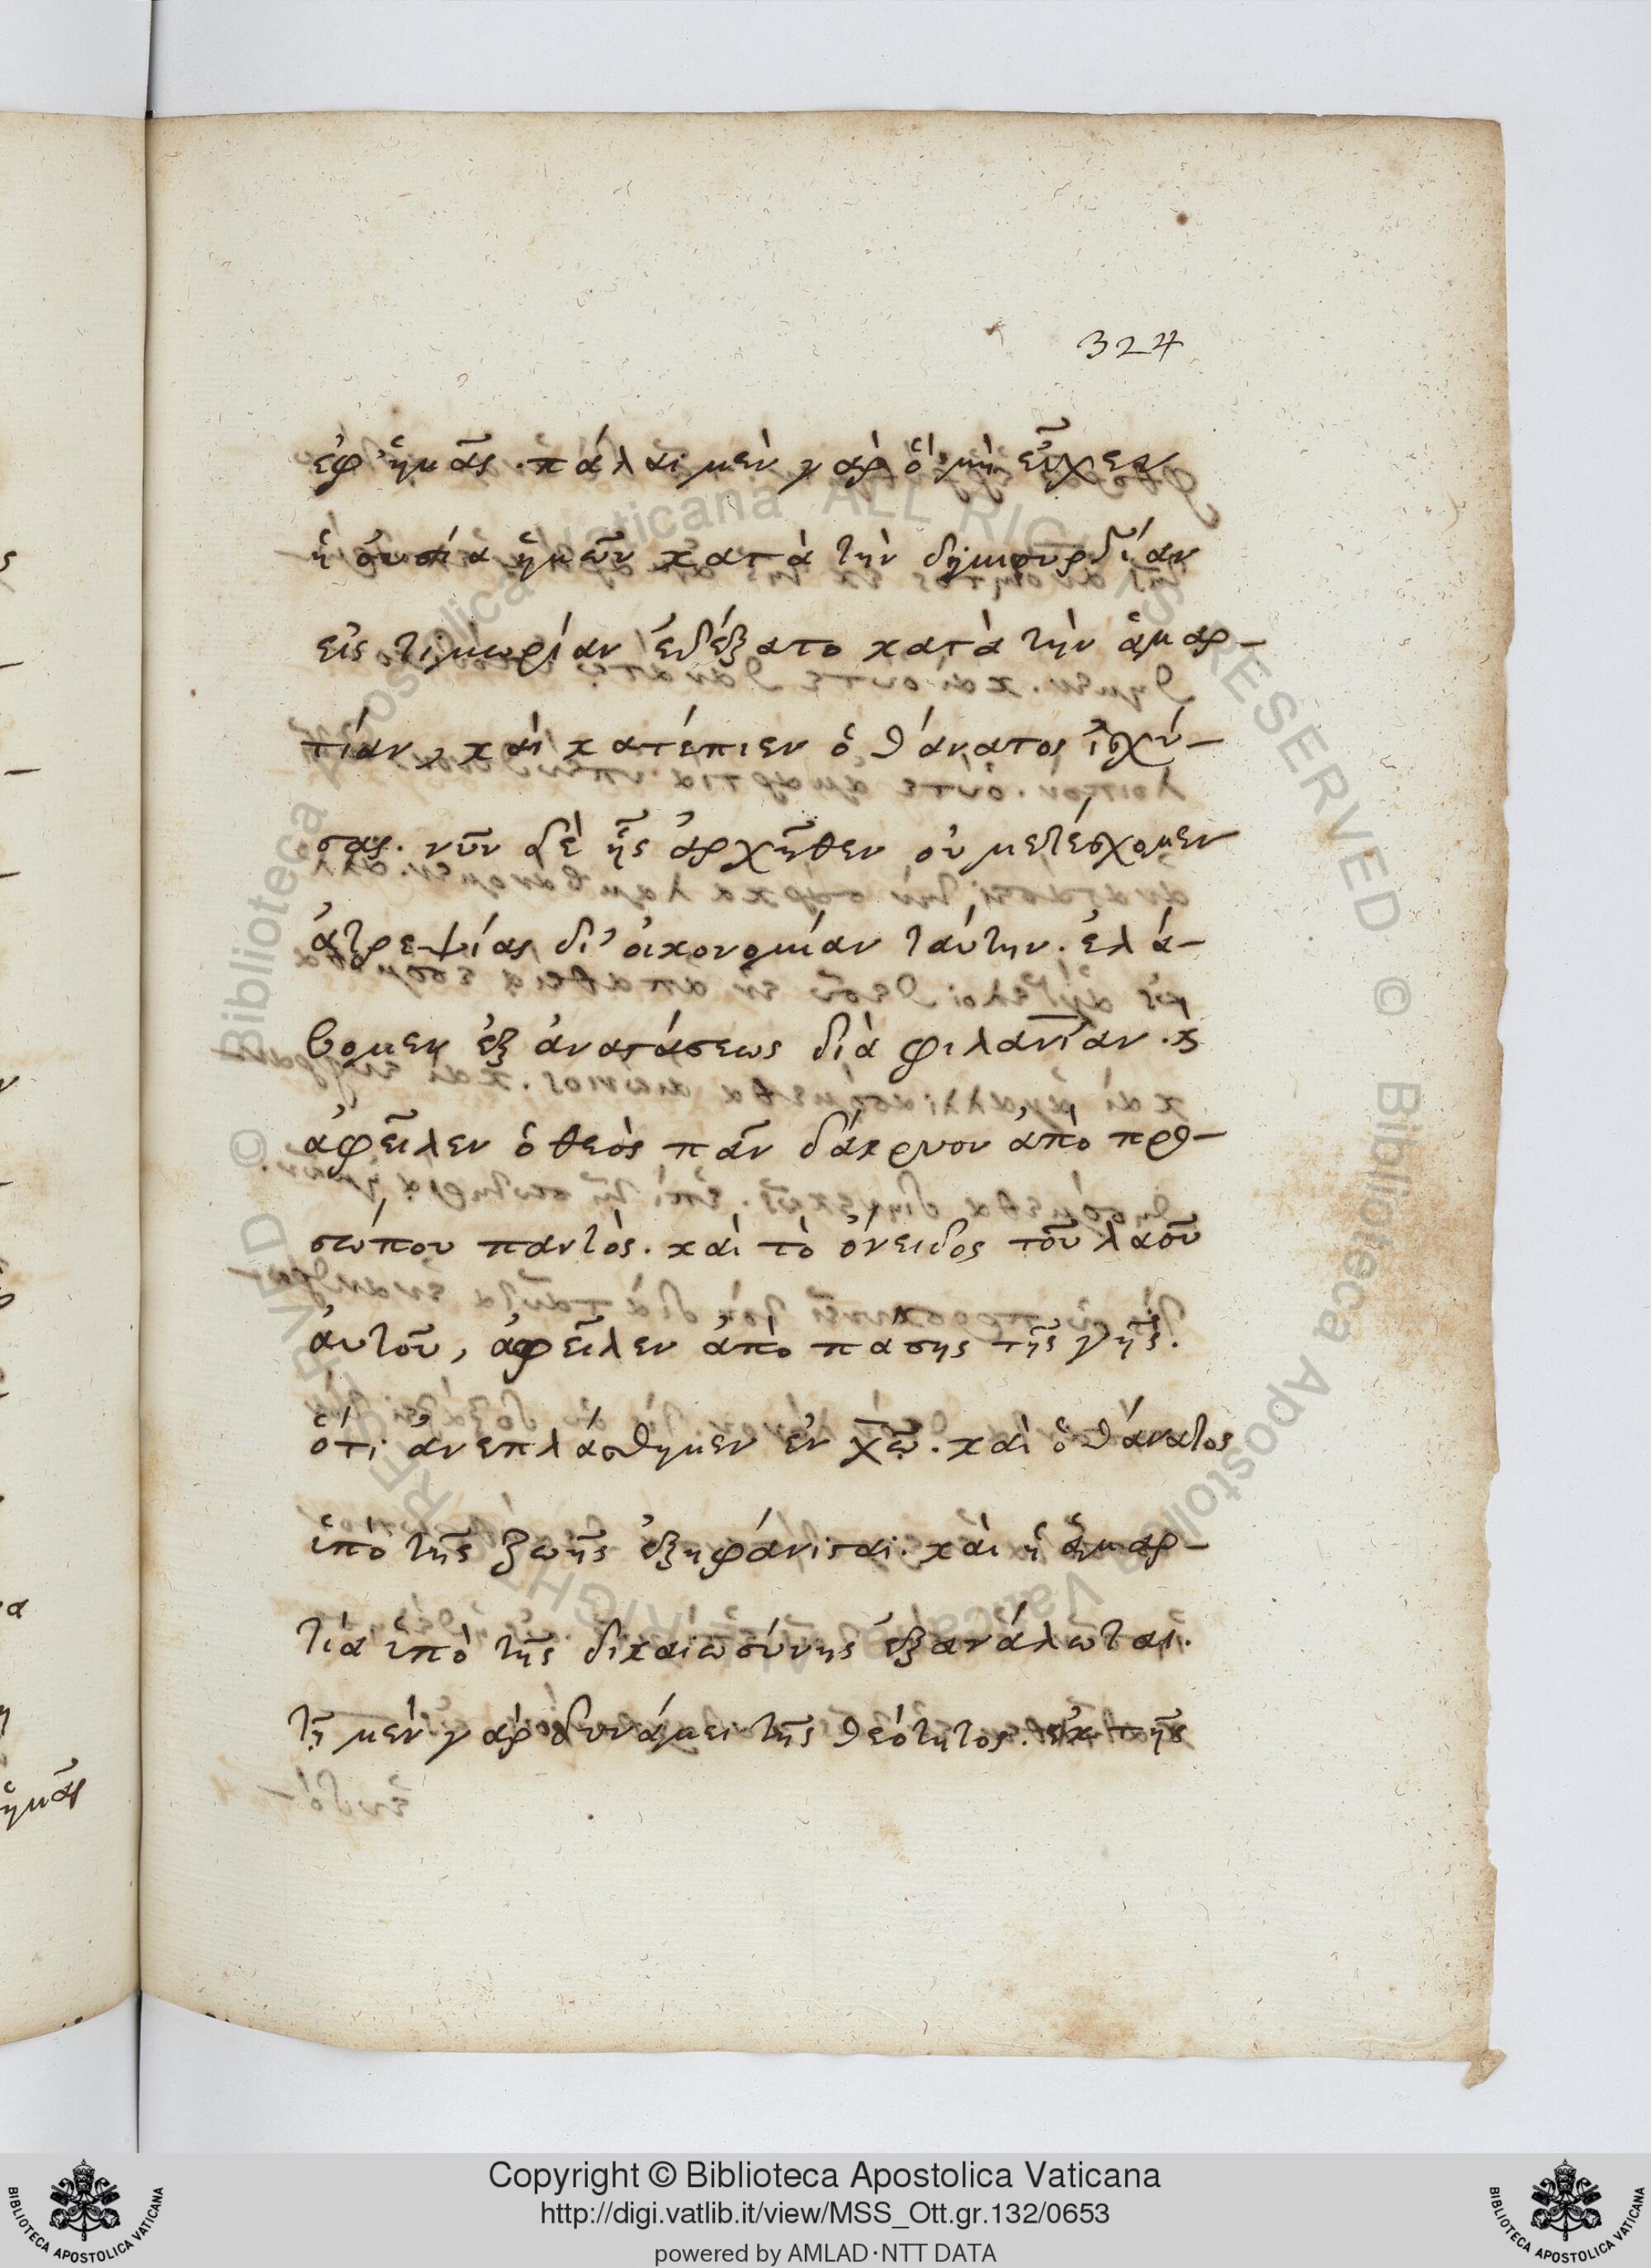 324
ἐφ' ἡμᾶς. πάλαι μὲν γὰρ ὃ μὴ εἶχεν
ἡ οὐσία ἡμῶν κατὰ τὴν δημιουργίαν
εἰς τιμωρίαν ἐδέξατο κατὰ τὴν ἁμαρ-
τίαν, καὶ κατέπιεν ὁ θάνατος ἰσχύ-
σας. νῦν δὲ ἧς ἀρχῆθεν οὐ μετέσχομεν
ἀτρεψίας δι' οἰκονομίαν ταύτην. ἐλά-
βομεν ἐξ ἀναστάσεως διὰ φιλανίαν. ϗ
ἀφεῖλεν ὁ θεὸς πᾶν δάκρυον ἀπὸ προ-
σώπου παντὸς. καὶ τὸ ὄνειδος τοῦ λαοῦ
αὐτοῦ, ἀφεῖλεν ἀπὸ πάσης τῆς γῆς.
ὅτι ἀνεπλάσθημεν ἐν χῶ. καὶ ὁ θάνατος
ὑπὸ τῆς ζωῆς ἐξηφάνισται. καὶ ἡ ἁμαρ-
τία ὑπὸ τῆς δικαιωσύνης ἐξανάλωται.
τῆ μὲν γὰρ δυνάμει τῆς θεότητος. ἐκ τῆς
ἡμᾶς
Copyright © Biblioteca Apostolica Vaticana
http://digi.vatlib.it/view/MSS_Ott.gr.132/0653
powered by AMLAD·NTT DATA
BIBLIOTECA APOSTOLICA VATICANA
BIBLIOTECA APOSTOLICA VATICANA